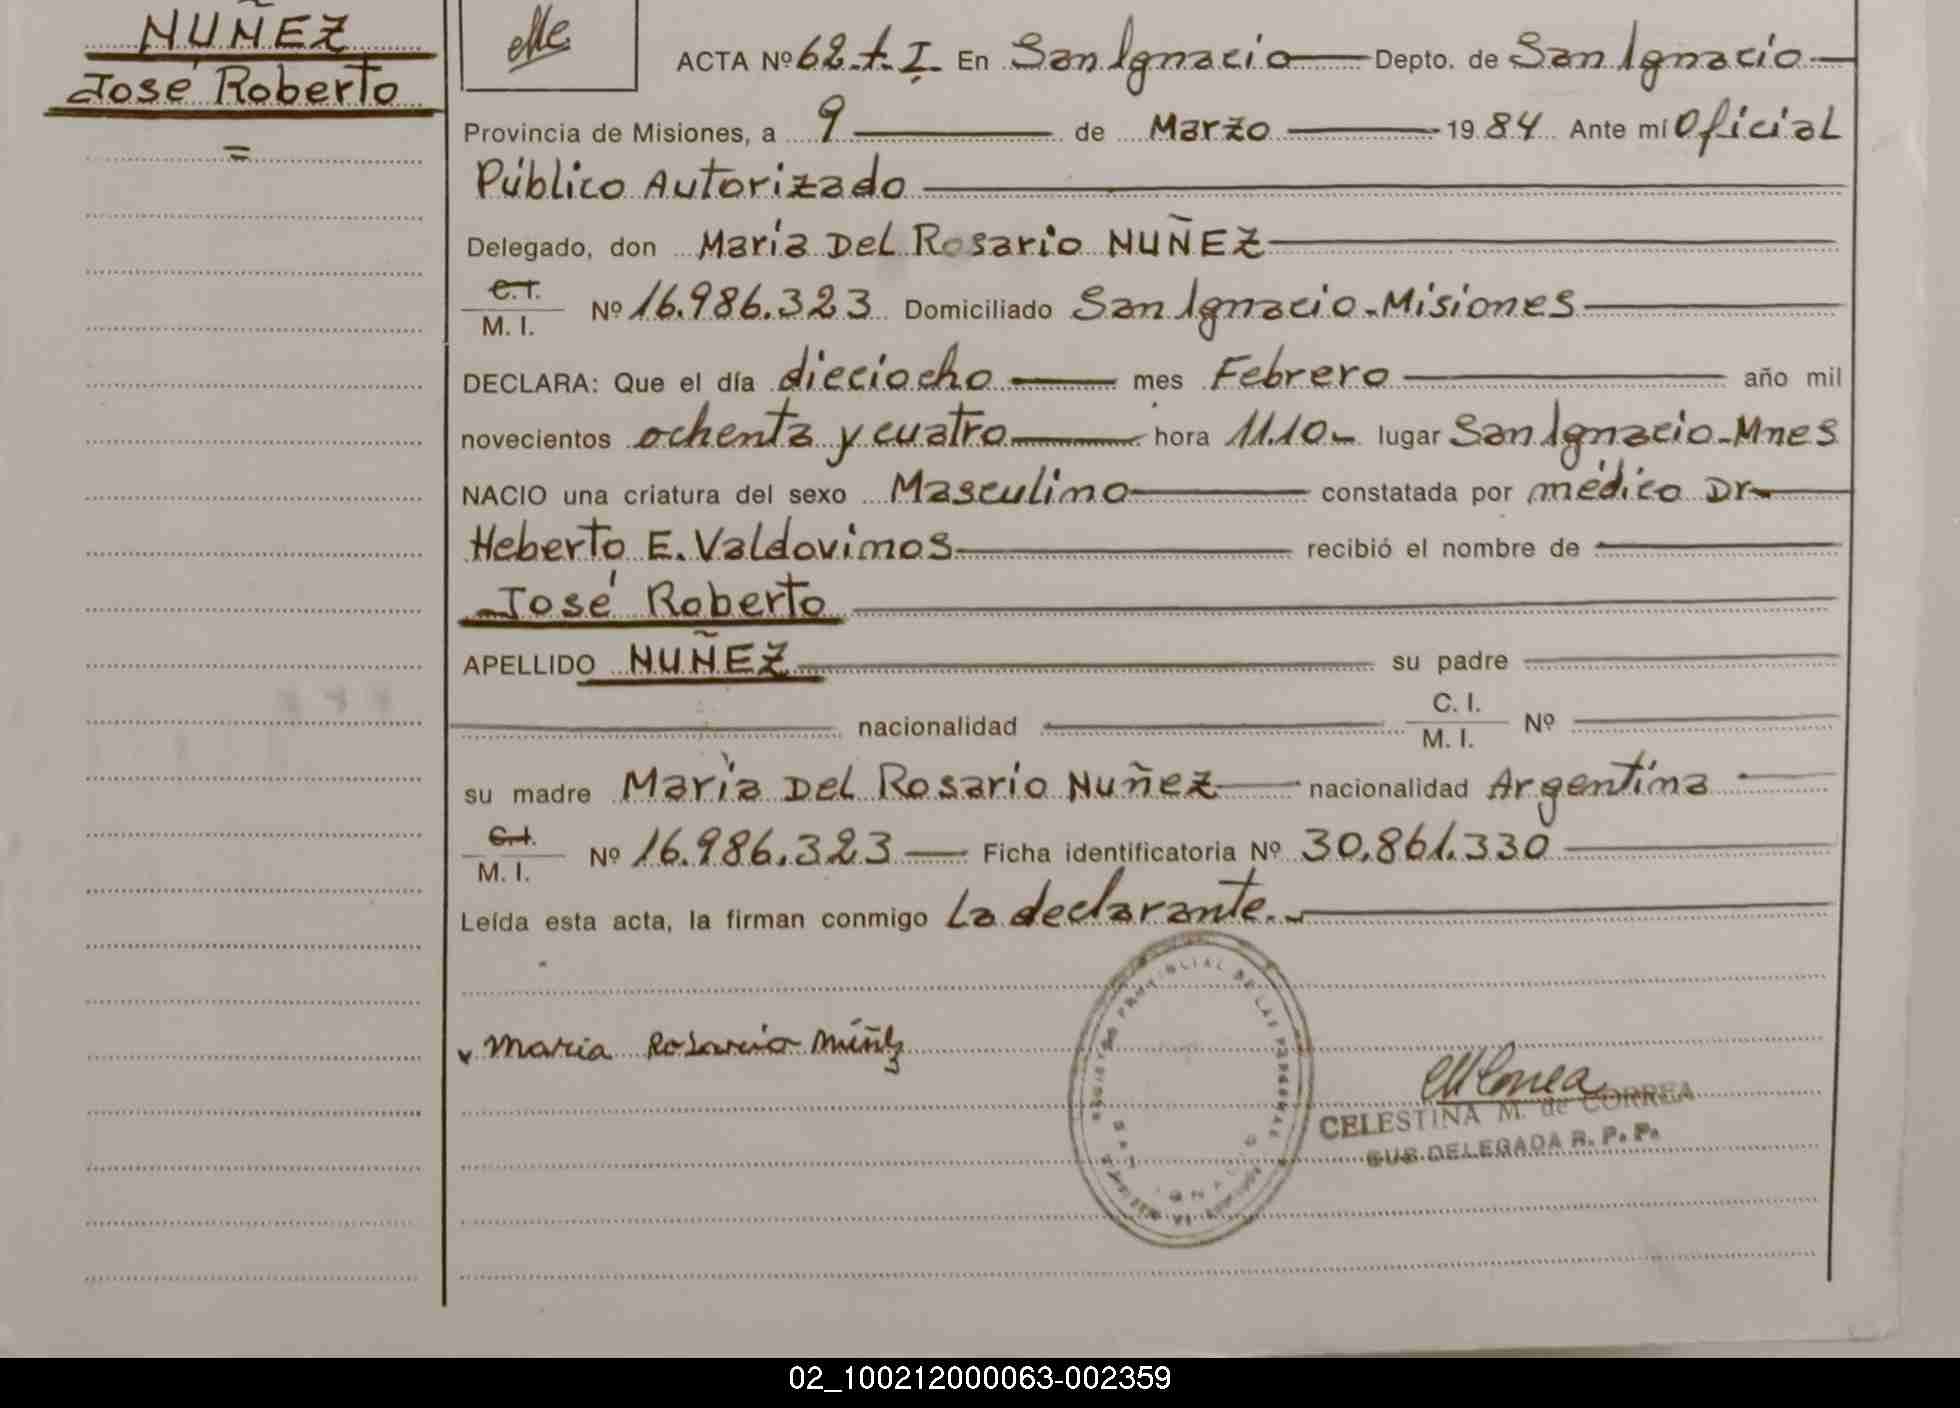 NUÑEZ
José Roberto
ACTA Nº 62-t. I. En San Ignacio Depto. de San Ignacio
Provincia de Misiones, a 9 de Marzo 1984 Ante mí Oficial
Público Autorizado
Delegado, don María Del Rosario NUÑEZ
C.I.
M. I. Nº 16.986.323 Domiciliado San Ignacio-Misiones
DECLARA: Que el día dieciocho mes Febrero año mil
novecientos ochenta y cuatro hora 11.10- lugar San Ignacio-Mnes
NACIO una criatura del sexo Masculino constatada por médico Dr-
Heberto E. Valdovinos recibió el nombre de
José Roberto
APELLIDO NUÑEZ su padre
nacionalidad C. I.
M. I. Nº
su madre María Del Rosario Nuñez nacionalidad Argentina
C.I.
M. I. Nº 16.986.323 Ficha identificatoria Nº 30.861.330
Leída esta acta, la firman conmigo La declarante.-
REGISTRO PROVINCIAL DE LAS PERSONAS
SAN IGNACIO
maria Rosario
CELESTINA M. de CORREA
SUB DELEGADA R. P. P.
02_100212000063-002359